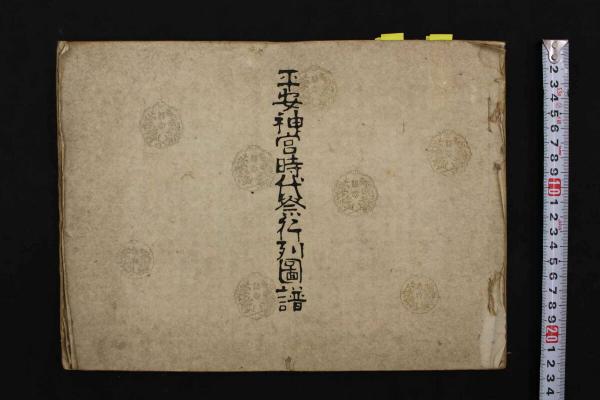 平安神宮時代祭行列圖譜
2
3
4
5
6
7
8
9
10
1
2
3
4
5
6
7
8
9
20
1
2
3
4